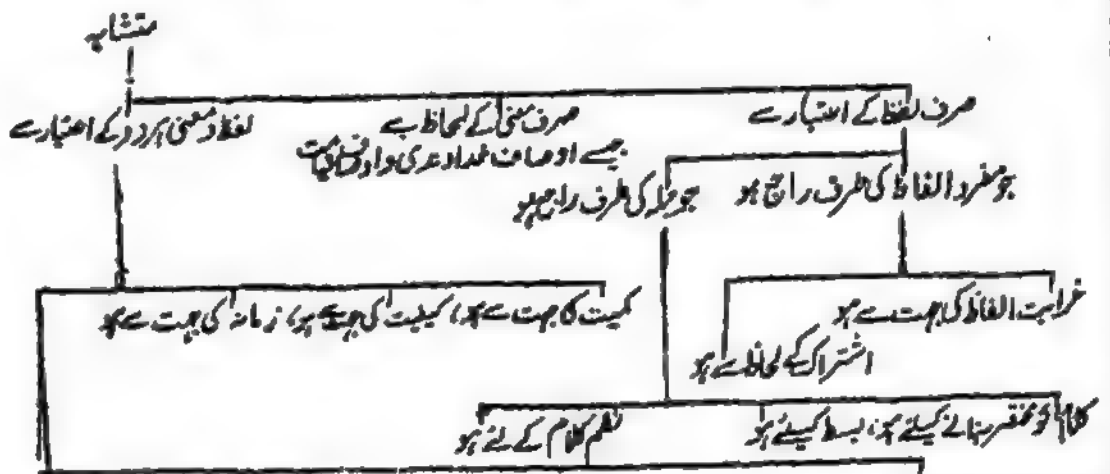 متشابہ
صرف لفظ کے اعتبار سے
صرف معنی کے لحاظ سے
جیسے اوصاف خداوندی و اوصاف قیامت
لفظ و معنی ہر دو کے اعتبار سے
جو مفرد الفاظ کی طرف راجع ہو
جو جملہ کی طرف راجع ہو
غرابت الفاظ کی جہت سے ہو
اشتراک کے لحاظ سے ہو
کمیت کی جہت سے ہو، کیفیت کی جہت سے ہو، زمانہ کی جہت سے ہو
کلام کو مختصر بنانے کیلئے ہو، بسط کیلئے ہو
نظم کلام کے لئے ہو